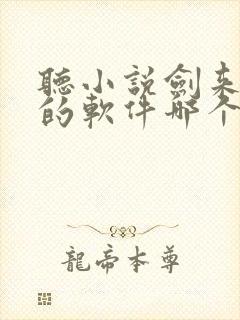 聽小説劍来
的軟件哪个
龍帝本尊